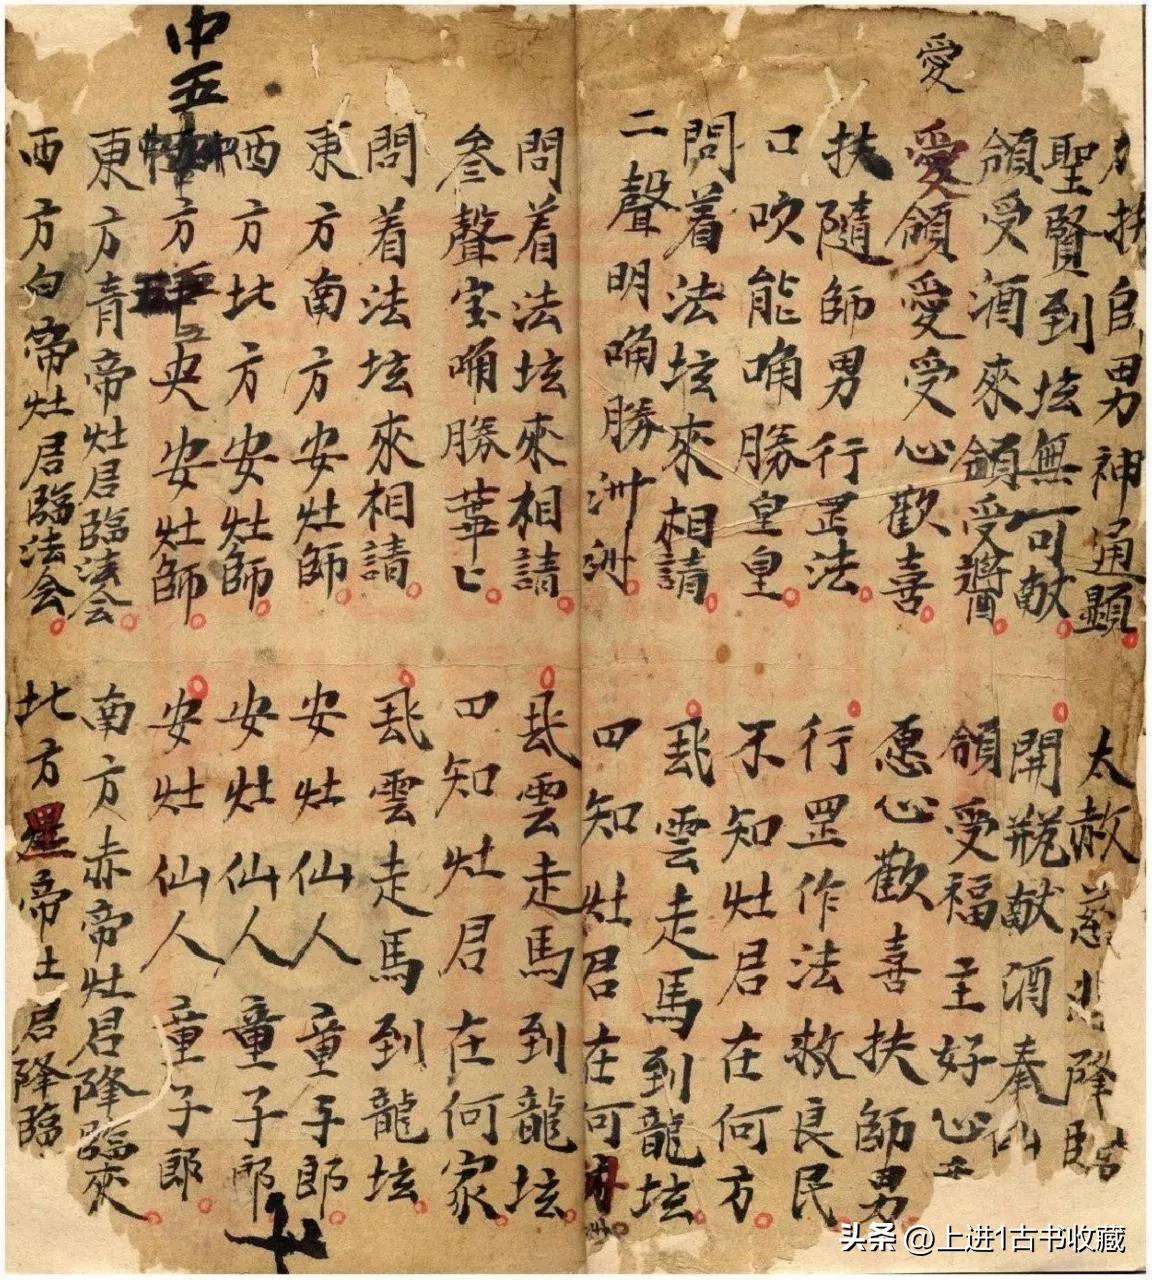 愛
扶自男神通顯 太赦慈悲降臨
聖賢到坛無可献 開瓶献酒奉仙
領受酒來領受 領受福主好心
愛領愛愛受心歡喜 愿心歡喜扶師男
扶隨師男行罡法 行罡作法救良民
口吹能唃勝皇皇 不知灶君在何方
問着法坛來相請 飛雲走馬到龍坛
二聲明唃勝洲洲 四知灶君在何
問着法坛來相請 飛雲走馬到龍坛
叁聲宝唃勝華匕 四知灶君在何家
問着法坛來相請 飛雲走馬到龍坛
東方南方安灶師 安灶仙人童子郎
西方北方安灶師 安灶仙人童子郎
中五
方 央安灶師 安灶仙人童子郎
東方青帝灶君臨法会 南方赤帝灶君降臨來
西方白帝灶君臨法会 北方黑帝土君降臨
头条 @上进1古书收藏